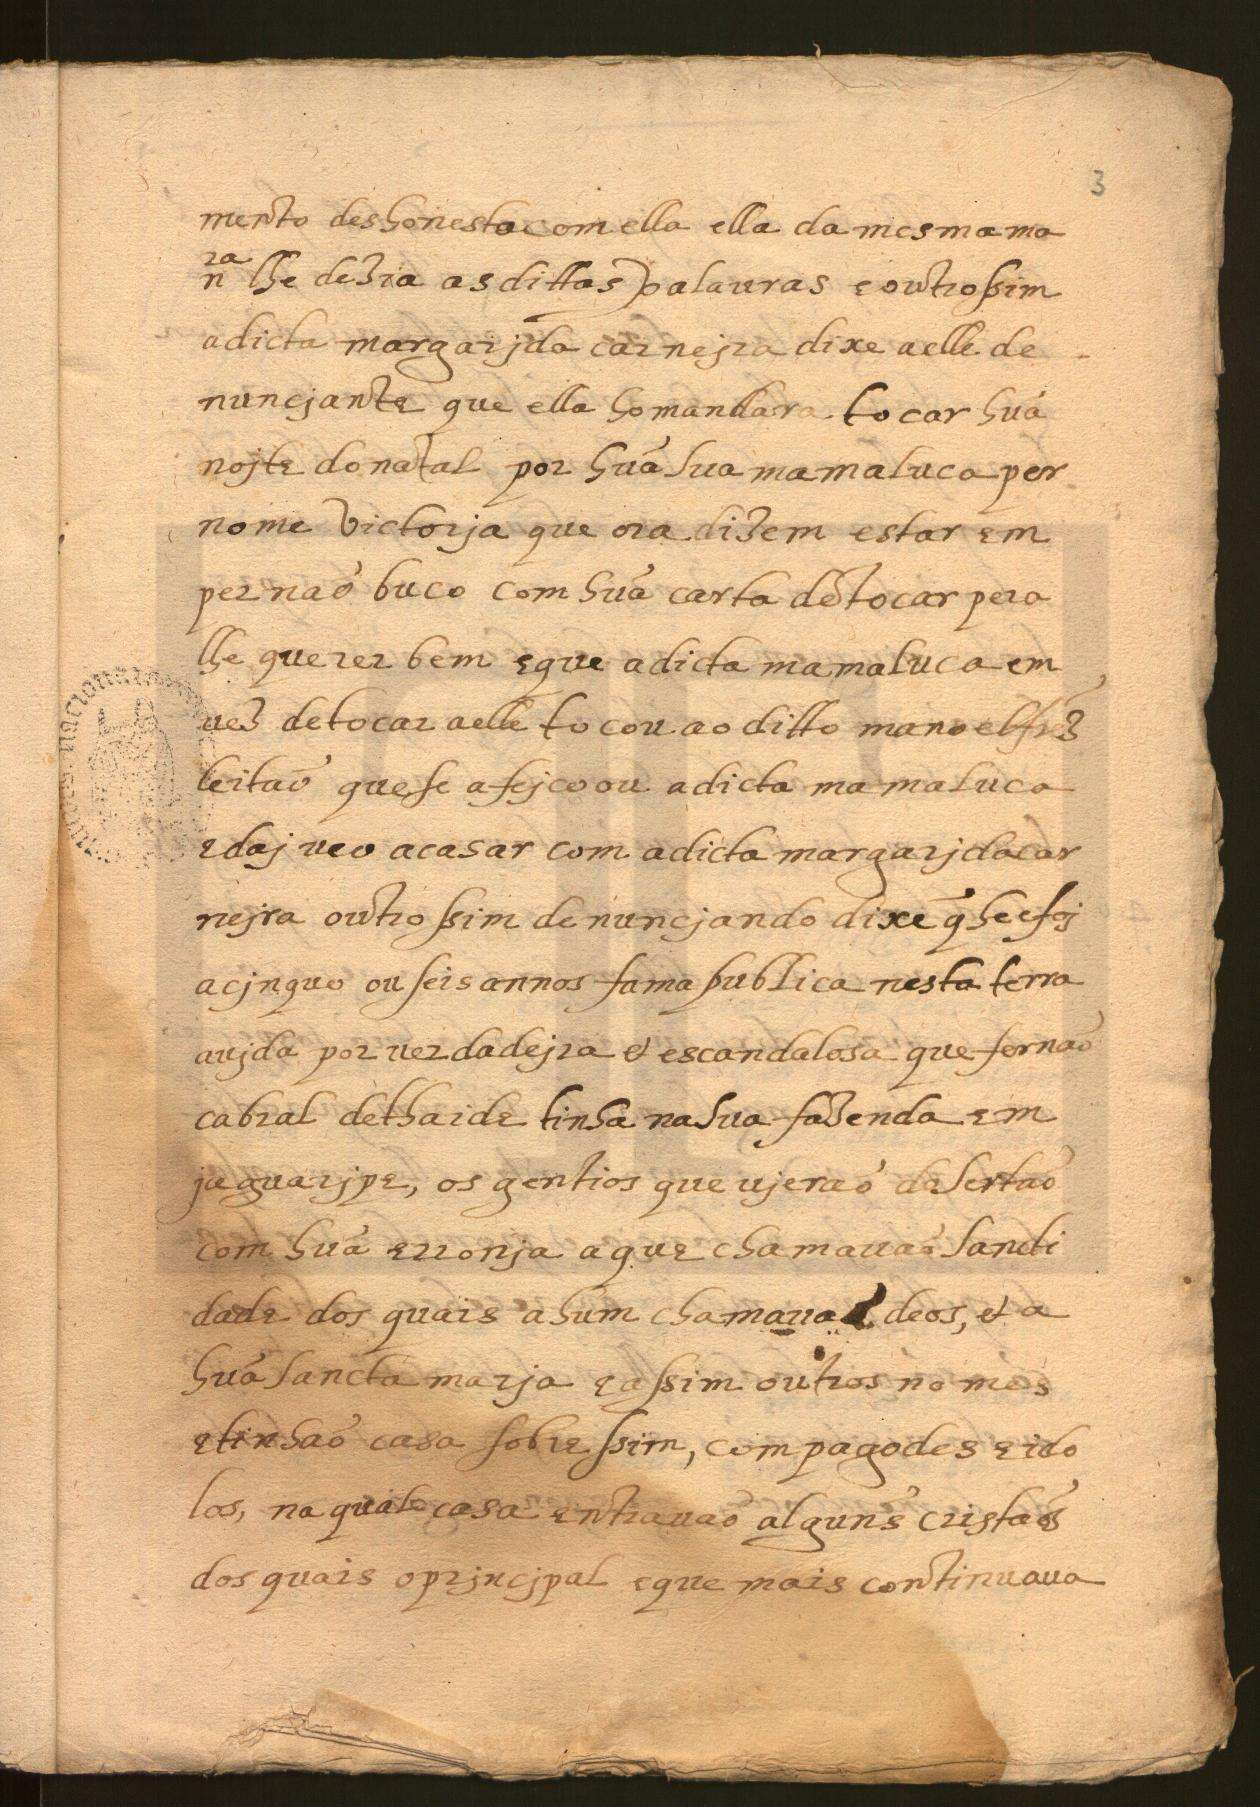 3
mento deshonesta com ella ella da mesma ma
nra lhe dezia as dittas palauras e outrossim
a dicta margarjda carnejra dixe a elle de
nuncjante que ella ho mandara tocar huã
nojte do natal por huã sua mamaluca per
nome victorja que ora dizem estar em
pernaõ buco com huã carta de tocar pera
lhe querer bem e que a dicta mamaluca em
uez de tocar a elle tocou ao ditto manoel frz
leitaõ que se afejcoou a dicta mamaluca
e daj veo a casar com a dicta margarjda car
nejra outrossim denuncjando dixe q̃ he e foj
a cjnquo ou seis annos fama publica nesta terra
aujda por uerdadejra & escandalosa que fernaõ
cabral dethaide tinha na sua fazenda em
jaguarjpe, os gentios que vjeraõ do sertaõ
com huã erronja a que chamauaõ sancti
dade dos quais a hum chamaua deos, & a
huã sancta marja e assim outros nomes
e tinhaõ casa sobre ssim, com pagodes e ido
los, na qual casa entrauaõ alguñs cristaõs
dos quais o prjncjpal e que mais continuaua